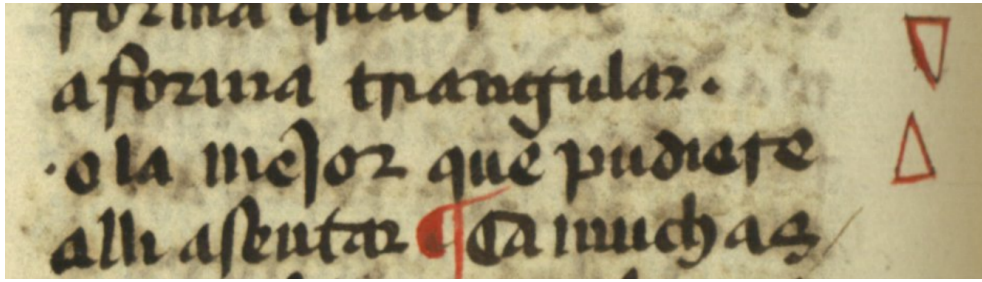 a forma triangular.
·o la mejor que pudiere
alli asentar ¶ Ca muchas